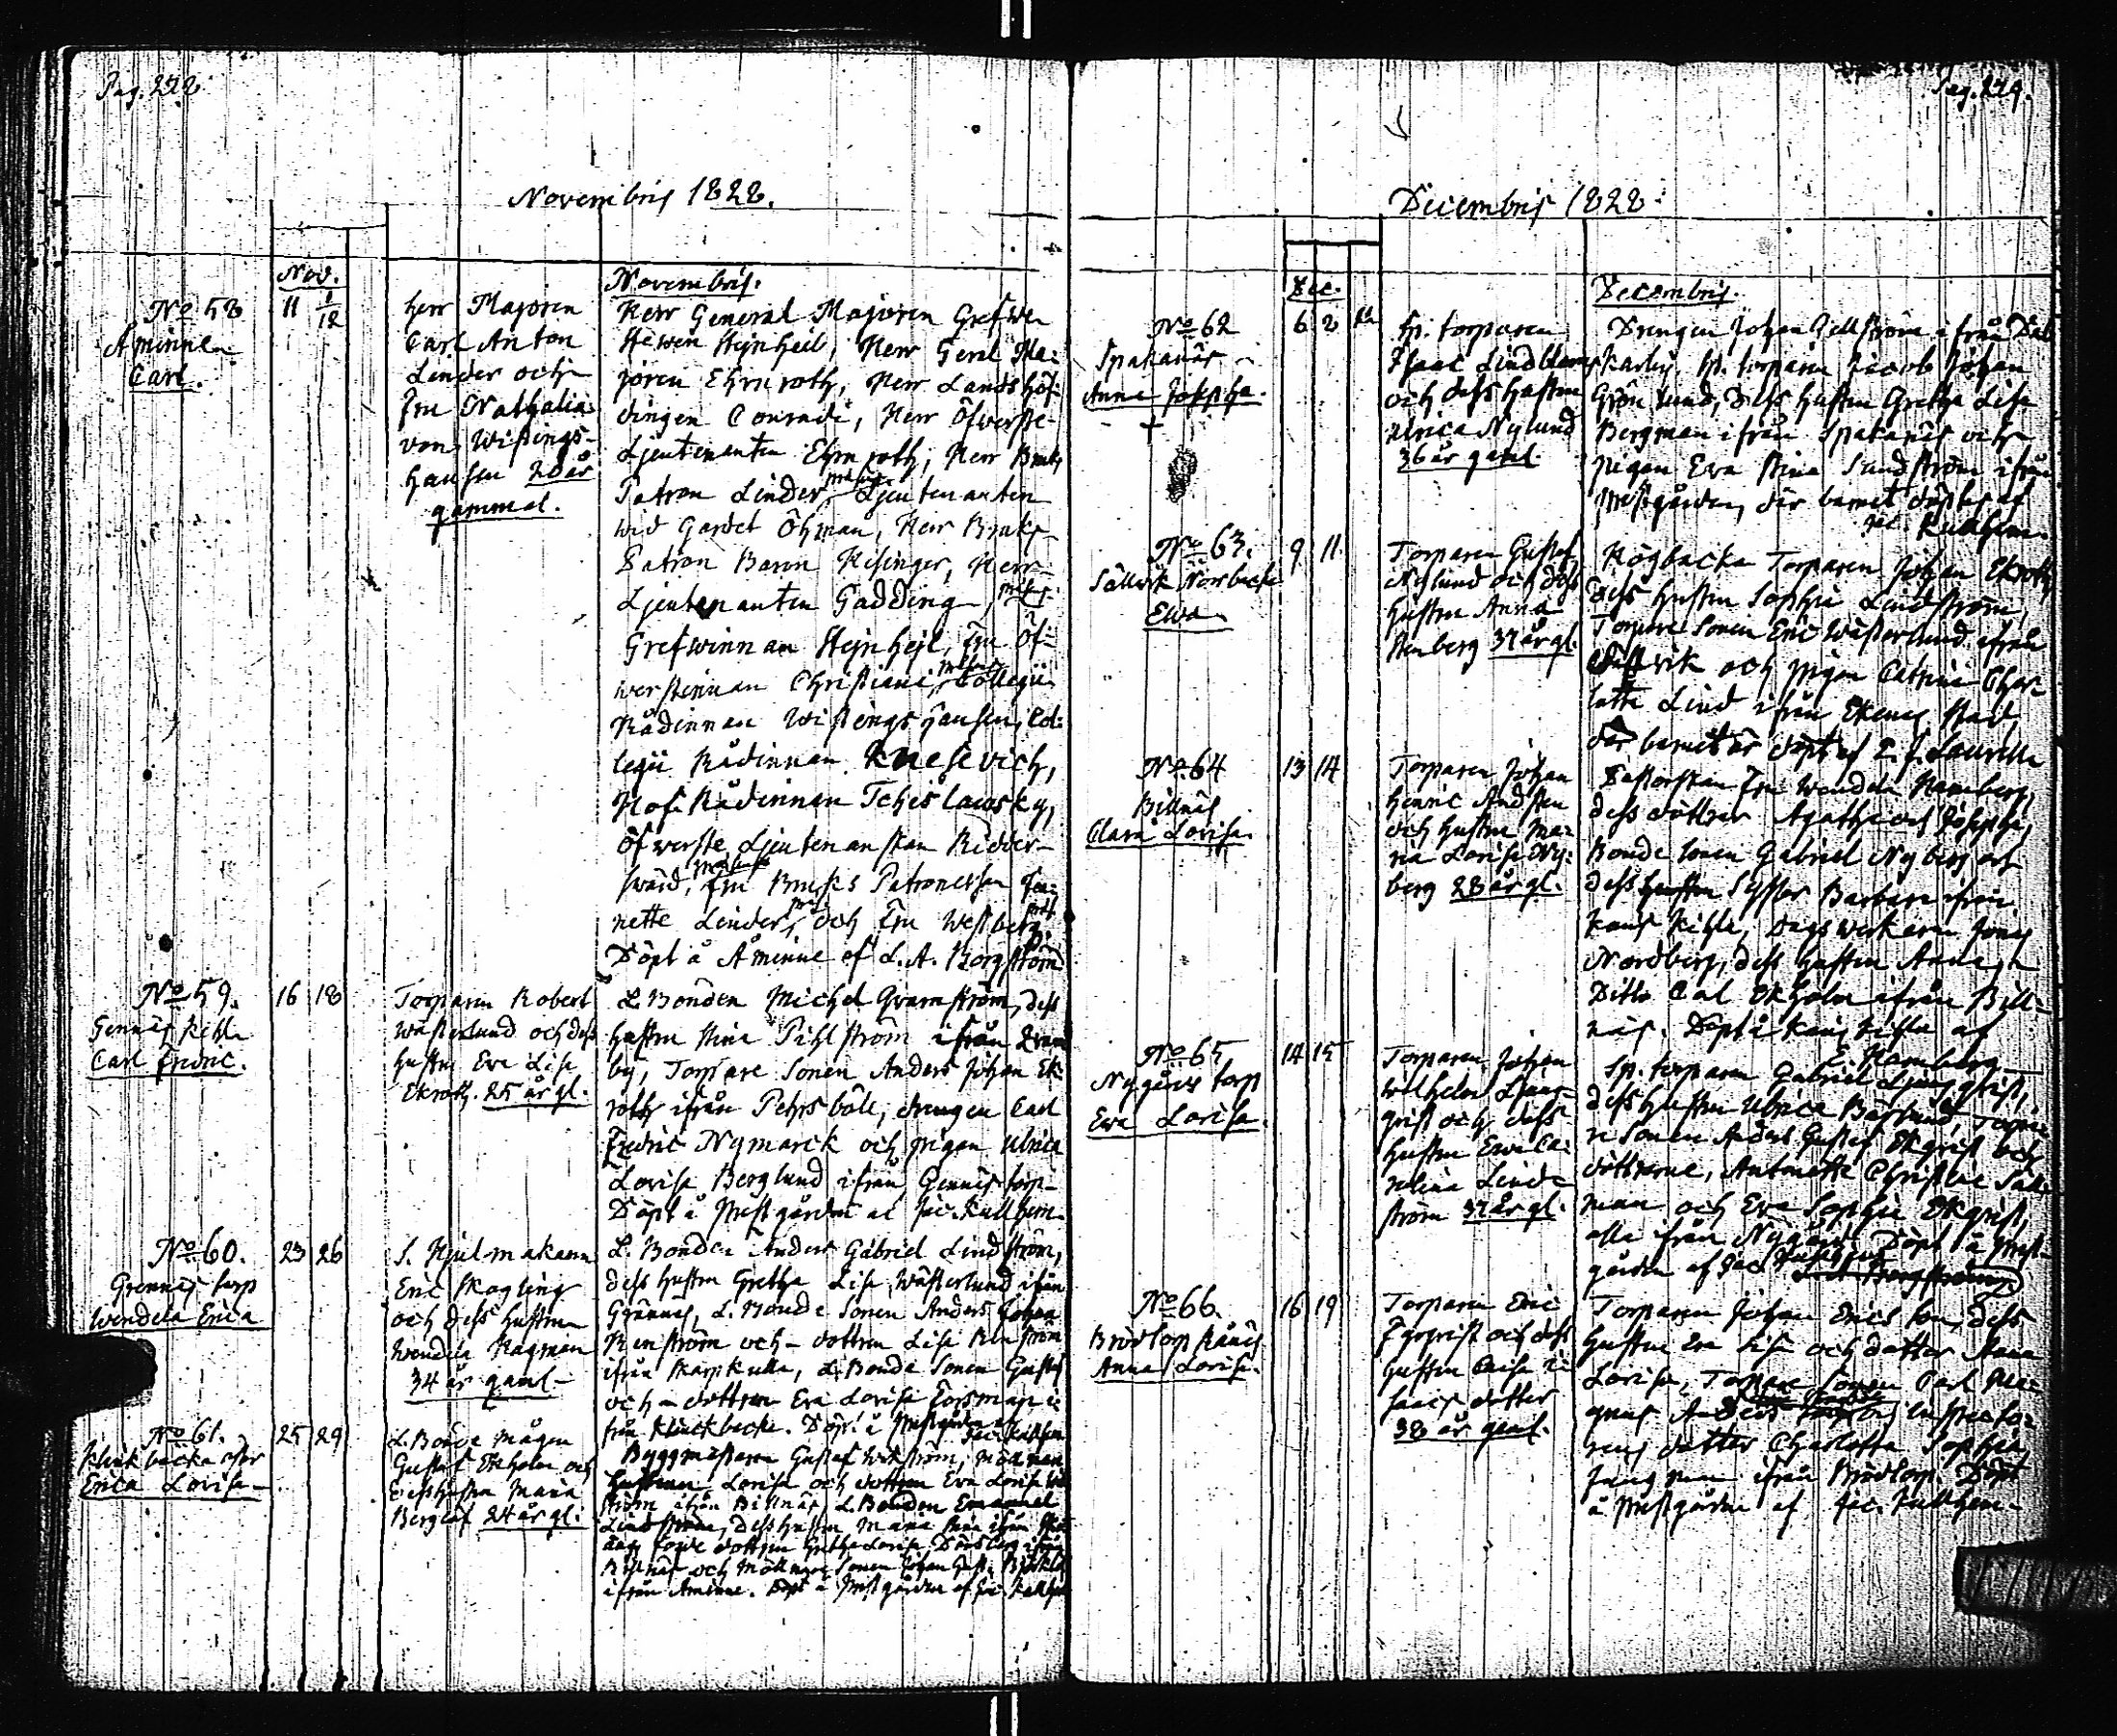 Pag. 228
Novembris 1828.
Nov.
Novembris.
No 58
Åminne
Carl.
11 1/12
Herr Majoren
Carl Anton
Linder och
Fru Nathalia
von Wissings-
hausen 20 år
gammal.
Herr General Majoren Grefwen
Stewen Steinheil, Herr Genl Ma-
joren Ehrnroth, Herr Landshöf-
dingen Conradi, Herr Öfverste-
Ljeutenanten Ehrnroth, Herr Bruks
Patron Linder, Ljeutenanten
wid Gardet Öhman, Herr Bruks
Patron Baron Hisinger, Herr
Ljeutenanten Gadding,
Grefwinnan Steinheil, Fru Öf-
werstinnan Christiani, Collegii
Rådinnan Wissingshausen, Col-
legii Rådinnan Knesevich,
Hof Rådinnan Tchislawsky,
Öfwerste Ljeutenanskan Ridder-
swärd, Fru Bruks Patronessan
nette Linder, och Fru Westberg,
Döpt å Åminne af L. A. Borgström
No 59.
Gennäs
Carl Fredric.
16 18
Torparen Robert
Wästerlund och dess
hustru Eva Lisa
Ekroth. 25 år gl.
L. Bonden Michel Qvarnström, dess
hustru Stina Pihlström ifrån
by, Torpare Sonen Anders Johan Ek-
roth ifrån Pehrsböle, drengen Carl
Fredric Nymarck och pigan Ulrica
Lovisa Berglund ifrån Gennäs torp
Döpt å Prestgården af Jac. Kullhem
No 60.
Grennäs torp
Wendela Erica
23 26
S. Hjulmakaren
Eric Skogling
och dess hustru
Wendela Hagman
34 år gaml
L. Bonden Anders Gabriel Lindström,
dess hustru Gretha Lisa Wästerlund ifrån
Grännäs, L. Bonde Sonen Anders Johan
Renström och dottren Lisa Renström
ifrån Karskulla, L. Bonde Sonen Gustaf
och dottren Eva Lovisa Forsman i-
från Klinckbacka. Döpt å Prestgården af
Jac. Kullhem
No 61.
Klinkbacka
Erica Lovisa
25 29
L. Bonde Mågen
Gustaf Ekholm och
dess hustru Maria
Berglöf 24 år gl.
Byggmästaren Gustaf Wikström,
Lovisa och dottren Eva Lovisa
ström ifrån Billnäs, L. Bonden Emanuel
Lindström, dess hustru Maria
dottren Gretha Lovisa
Billnäs och Sonen Johan Gust.
ifrån Åminne. Döpt å Prestgården af Jac. Kullhem
Pag. 229.
Decembris 1828.
Dec.
Decembris.
No 62
Spakanäs
Anna Josepha.
†
6 8
Sp. torparen
Isaac Lindblom
och dess hustru
Ulrica Nylund
36 år gaml.
Drengen Johan Zellström ifrån Dal-
karby, Sp. torparen Jacob Johan
Grönlund, dess hustru Gretha Lisa
Bergman ifrån Spakanäs och
pigan Eva Stina Sundström ifrån
Prestgården, där barnet döptes af
Jac. Kullhem
No 63.
Sällvik Norrbacka
Ewa
9 11.
Torparen Gustaf
Nylund och dess
hustru Anna
Stenberg 37 år gl.
Högbacka Torparen Johan Ekroth
dess hustru Sophia Lindström,
Torpare Sonen Eric Wästerlund ifrån
och pigan Catrina Char-
lotta Lind ifrån Ekenäs stad
där barnet är döpt af
No 64
Billnäs
Clara Lovisa
13 14
Torparen Johan
Henric Andsten
och hustru Ma-
ria Lovisa Ny-
berg 28 år gl.
Pastorskan Fru Wendela Hamberg,
dess döttrar Agatha och Josepha,
Bonde Sonen Gabriel Nyberg och
dess Syster Barbara ifrån
Dagswerkaren Jonas
Nordberg, dess hustru Anna
Ditto Carl Ekholm ifrån Bill-
näs. Döpt å af
E. Hamberg
No 65
Nygårds torp
Ewa Lovisa.
14 15
Torparen Johan
Wilhelm Ljung-
qvist och dess
hustru Ewa Ca-
rolina Linde-
ström 37 år gl.
Sp. torparen Gabriel Ljungqvist,
dess hustru Ulrica Törnpa-
re Sonen Anders Gustaf Ekqvist och
döttrarne, Antonetta Christina
man och Eva Sophia Ekqvist,
alla ifrån Nygård. Döpt å Prest-
gården af Jac Kullhem
No 66.
Brödtorp
Anna Lovisa.
16 19
Torparen Eric
och dess
hustru Caisa I-
saacs dotter
38 år gaml.
Torparen Johan Ericsson, dess
hustru Eva Lisa och dotter Anna
Lovisa, Torpare Sonen Carl Mag-
nus Inspecto-
rens dotter Charlotta Sophia
ifrån Brödtorp. Döpt
å Prestgården af Jac. Kullhem